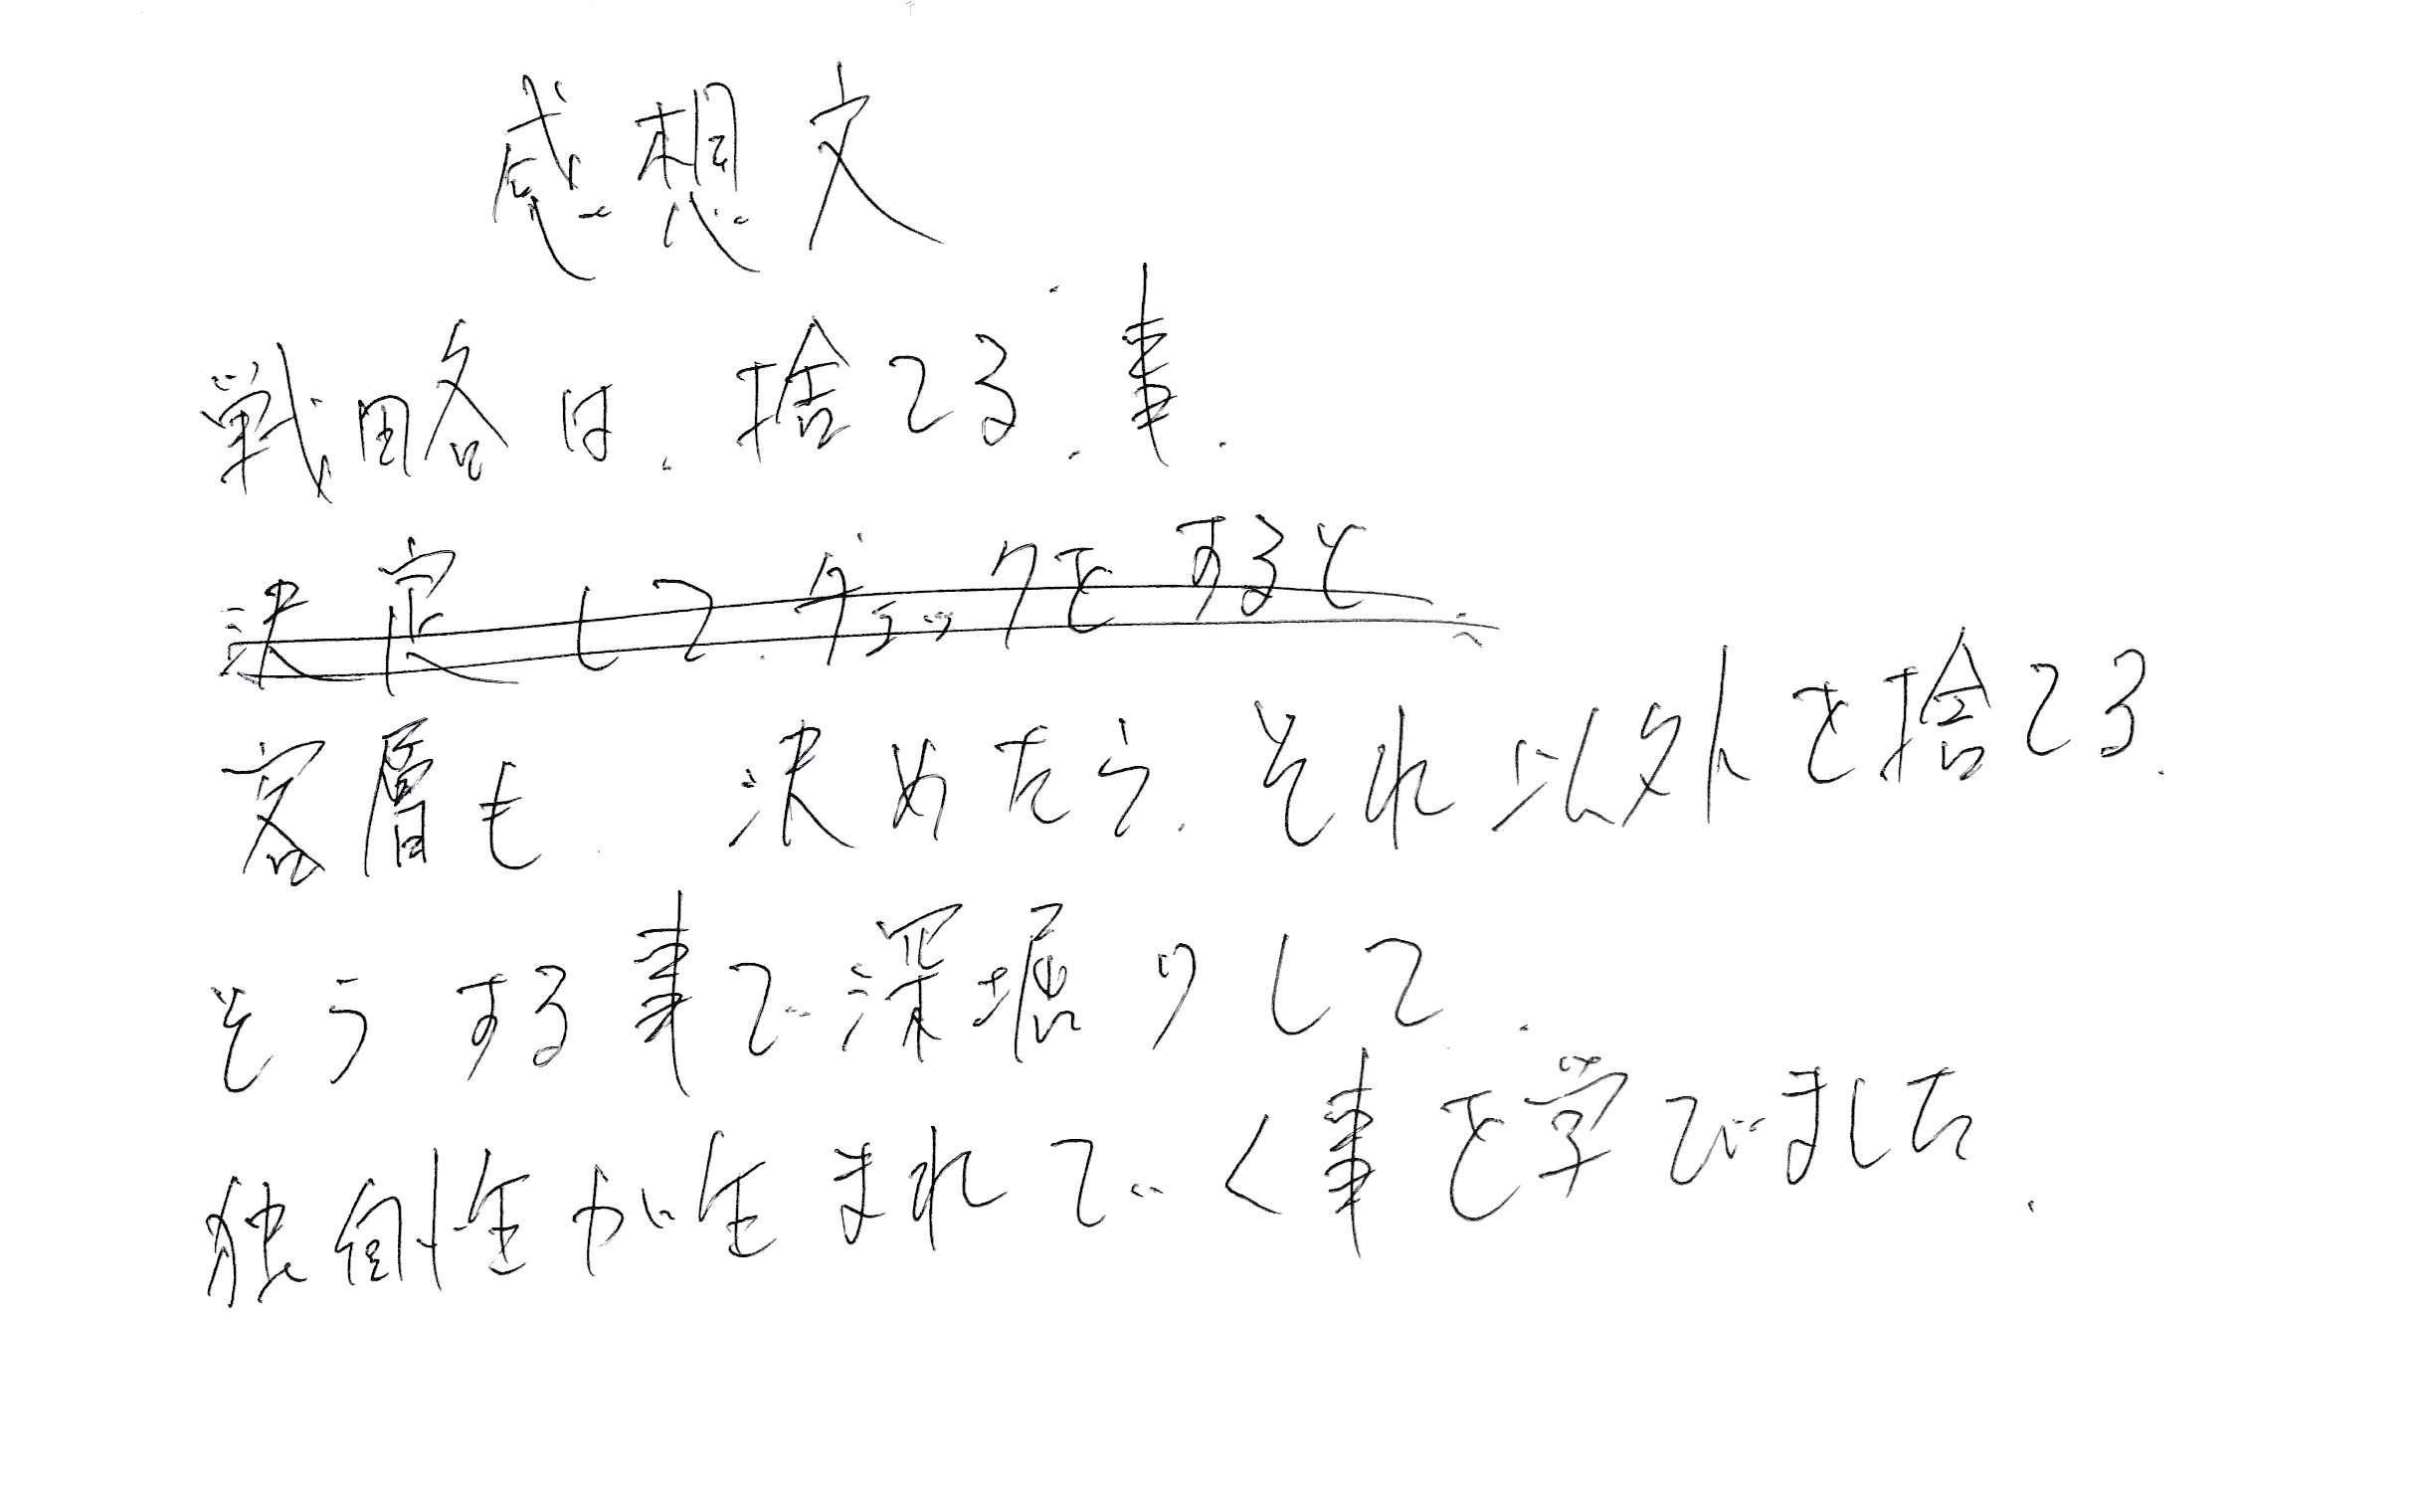 感想文
戦略は、捨てる、事、
決定して、チェックをすると、
客層も、決めたら、それ以外を捨てる、
そうする事で深堀りして、
独創性が生まれてく事を学びました、